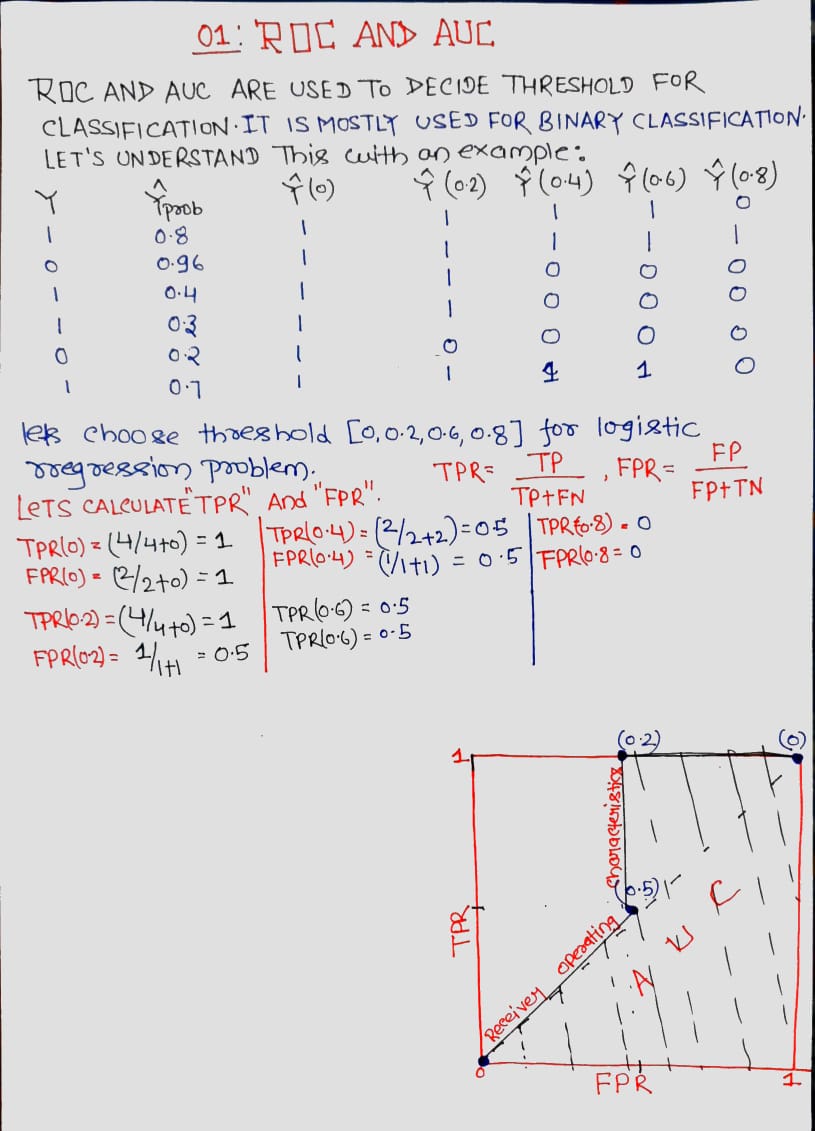 01: ROC AND AUC
ROC AND AUC ARE USED TO DECIDE THRESHOLD FOR
CLASSIFICATION. IT IS MOSTLY USED FOR BINARY CLASSIFICATION.
LET'S UNDERSTAND This with an example:
Y Ŷprob Ŷ(0) Ŷ(0.2) Ŷ(0.4) Ŷ(0.6) Ŷ(0.8)
1 0.8 1 1 1 1 0
0 0.96 1 1 1 1 1
1 0.4 1 1 0 0 0
1 0.3 1 1 0 0 0
0 0.2 1 0 0 0 0
1 0.7 1 1 1 1 0
lets choose threshold [0, 0.2, 0.6, 0.8] for logistic
rregression problem.
TPR = TP/TP+FN , FPR = FP/FP+TN
LETS CALCULATE "TPR" And "FPR".
TPR(0) = (4/4+0) = 1
FPR(0) = (2/2+0) = 1
TPR(0.2) = (4/4+0) = 1
FPR(0.2) = 1/1+1 = 0.5
TPR(0.4) = (2/2+2) = 0.5
FPR(0.4) = (1/1+1) = 0.5
TPR(0.6) = 0.5
TPR(0.6) = 0.5
TPR(0.8) = 0
FPR(0.8 = 0
(0.2) (0)
1
characteristics
(0.5)
TPR
operating
Receiver
A U C
0
FPR
1